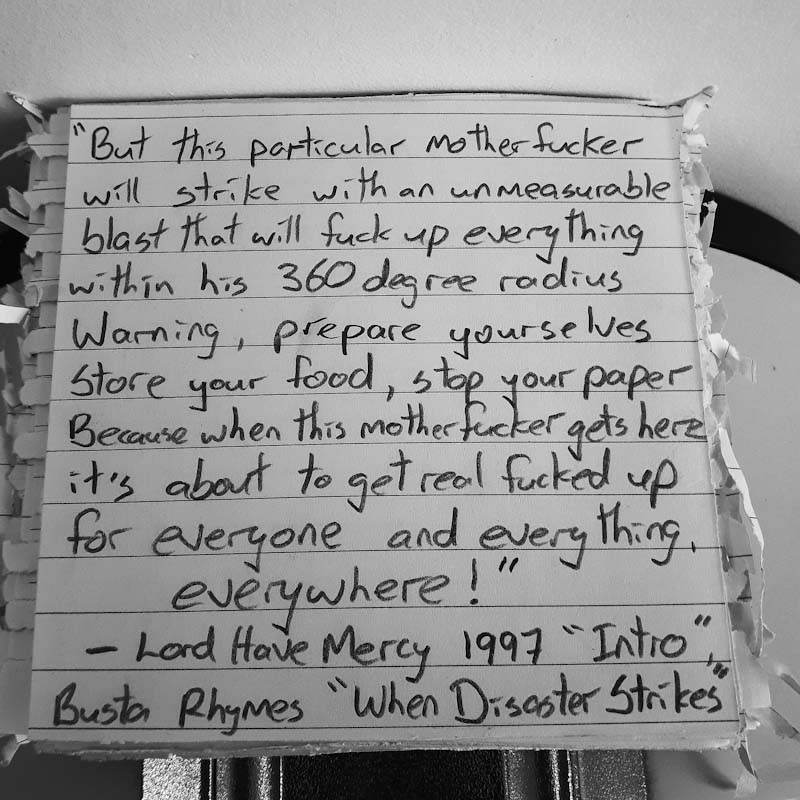 "But this particular motherfucker
will strike with an unmeasurable
blast that will fuck up everything
within his 360 degree radius
Warning, prepare yourselves
Store your food, stop your paper
Because when this motherfucker gets here
it's about to get real fucked up
for everyone and everything,
everywhere!"
– Lord Have Mercy 1997 "Intro",
Busta Rhymes "When Disaster Strikes"